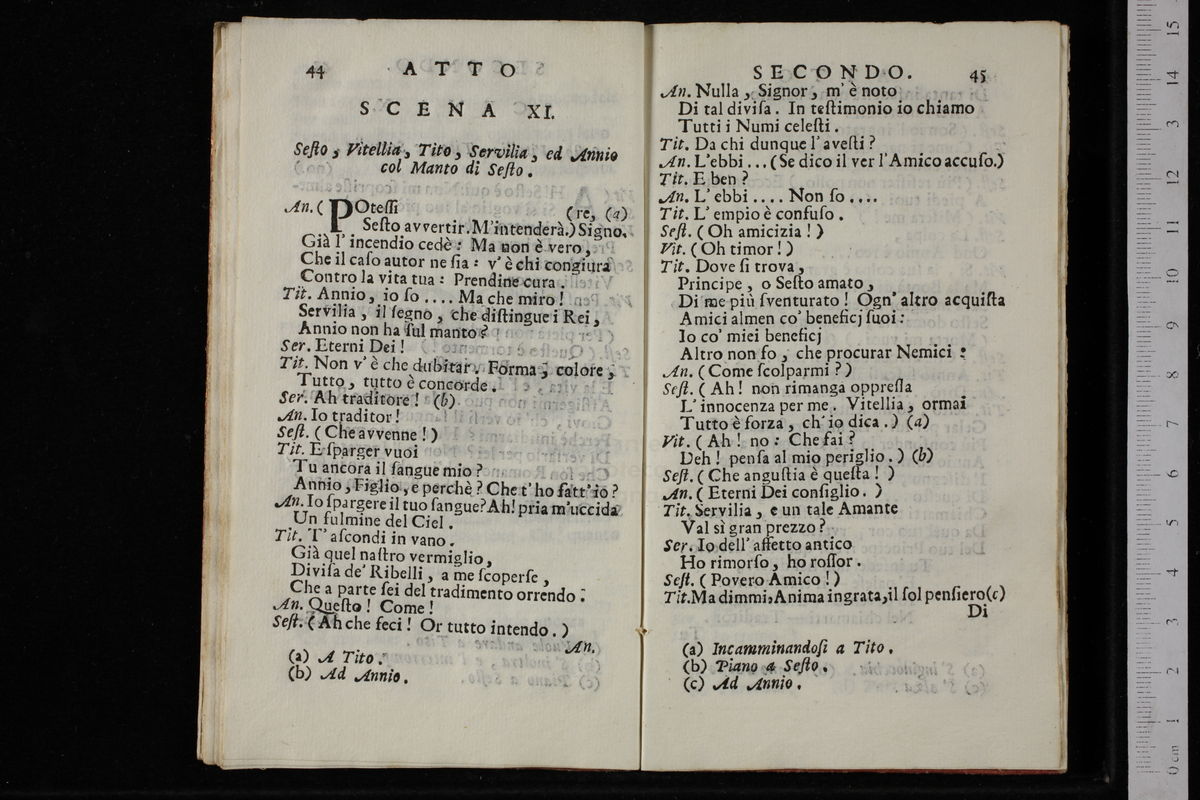 44 ATTO
SCENA XI.
Seſto, Vitellia, Tito, Servilia, ed Annio
col Manto di Seſto.
An. ( POteſſi (re, (a)
Seſto avvertir. M'intenderà.) Signo-
Già l'incendio cedè: Ma non è vero,
Che il caſo autor ne ſia: v'è chi congiura
Contro la vita tua: Prendine cura.
Tit. Annio, io ſo .... Ma che miro!
Servilia, il ſegno, che diſtingue i Rei,
Annio non ha ſul manto?
Ser. Eterni Dei!
Tit. Non v'è che dubitar. Forma, colore,
Tutto, tutto è concorde.
Ser. Ah traditore! (b)
An. Io traditor!
Seſt. (Che avvenne!)
Tit. E ſparger vuoi
Tu ancora il ſangue mio?
Annio, Figlio, e perchè? Che t'ho fatt'io?
An. Io ſpargere il tuo ſangue? Ah! pria m'uccida
Un fulmine del Ciel.
Tit. T'aſcondi in vano.
Già quel naſtro vermiglio,
Diviſa de' Ribelli, a me ſcoperſe,
Che a parte ſei del tradimento orrendo.
An. Queſto! Come!
Seſt. (Ah che feci! Or tutto intendo.)
An.
(a) A Tito.
(b) Ad Annio.
SECONDO. 45
An. Nulla, Signor, m'è noto
Di tal diviſa. In teſtimonio io chiamo
Tutti i Numi celeſti.
Tit. Da chi dunque l'aveſti?
An. L'ebbi ... (Se dico il ver l'Amico accuſo.)
Tit. E ben?
An. L'ebbi .... Non ſo ....
Tit. L'empio è confuſo.
Seſt. (Oh amicizia!)
Vit. (Oh timor!)
Tit. Dove ſi trova,
Principe, o Seſto amato,
Di me più ſventurato! Ogn'altro acquiſta
Amici almen co' beneficj ſuoi:
Io co' miei beneficj
Altro non fo, che procurar Nemici:
An. (Come ſcolparmi?)
Seſt. (Ah! non rimanga oppreſſa
L'innocenza per me. Vitellia, ormai
Tutto è forza, ch'io dica.) (a)
Vit. (Ah! no: Che fai?
Deh! penſa al mio periglio.) (b)
Seſt. (Che anguſtia è queſta!)
An. (Eterni Dei conſiglio.)
Tit. Servilia, e un tale Amante
Val sì gran prezzo?
Ser. Io dell'affetto antico
Ho rimorſo, ho roſſor.
Seſt. (Povero Amico!)
Tit. Ma dimmi, Anima ingrata, il ſol penſiero (c)
Di
(a) Incamminandoſi a Tito.
(b) Piano a Seſto.
(c) Ad Annio.
15
14
13
12
11
10
9
8
7
6
5
4
3
2
1
0 cm